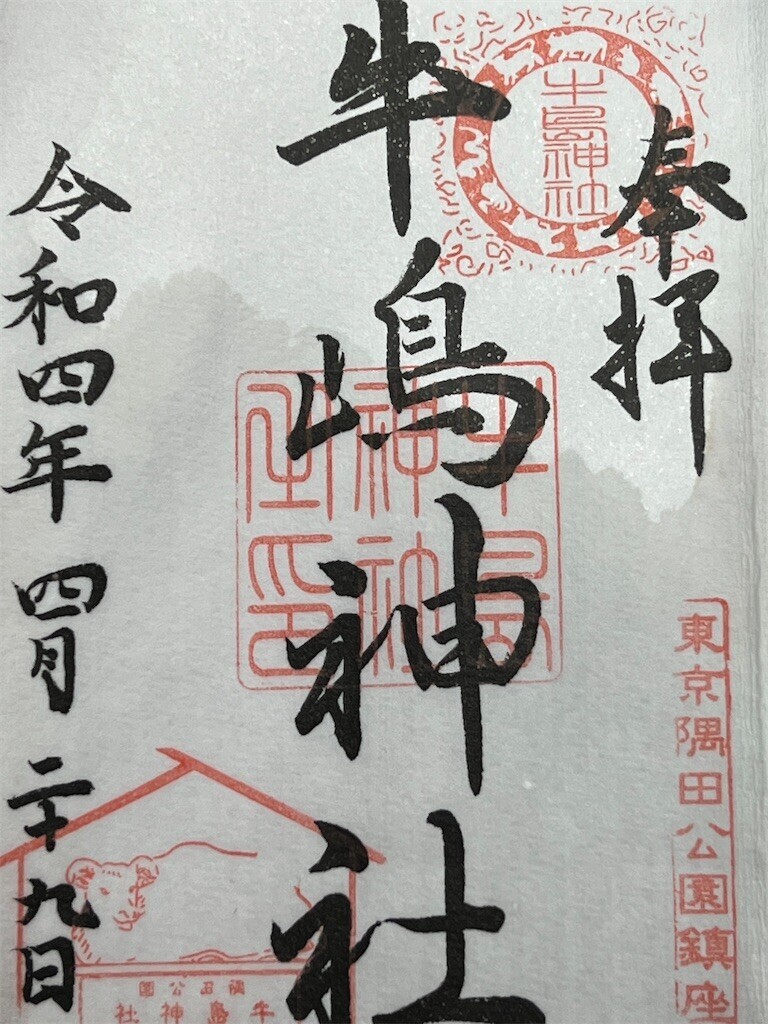 奉拝
牛島神社
東京隅田公園鎮座
牛嶋神社
牛島
神社
之印
令和四年 四月 二十九日
隅田公園
牛島神社